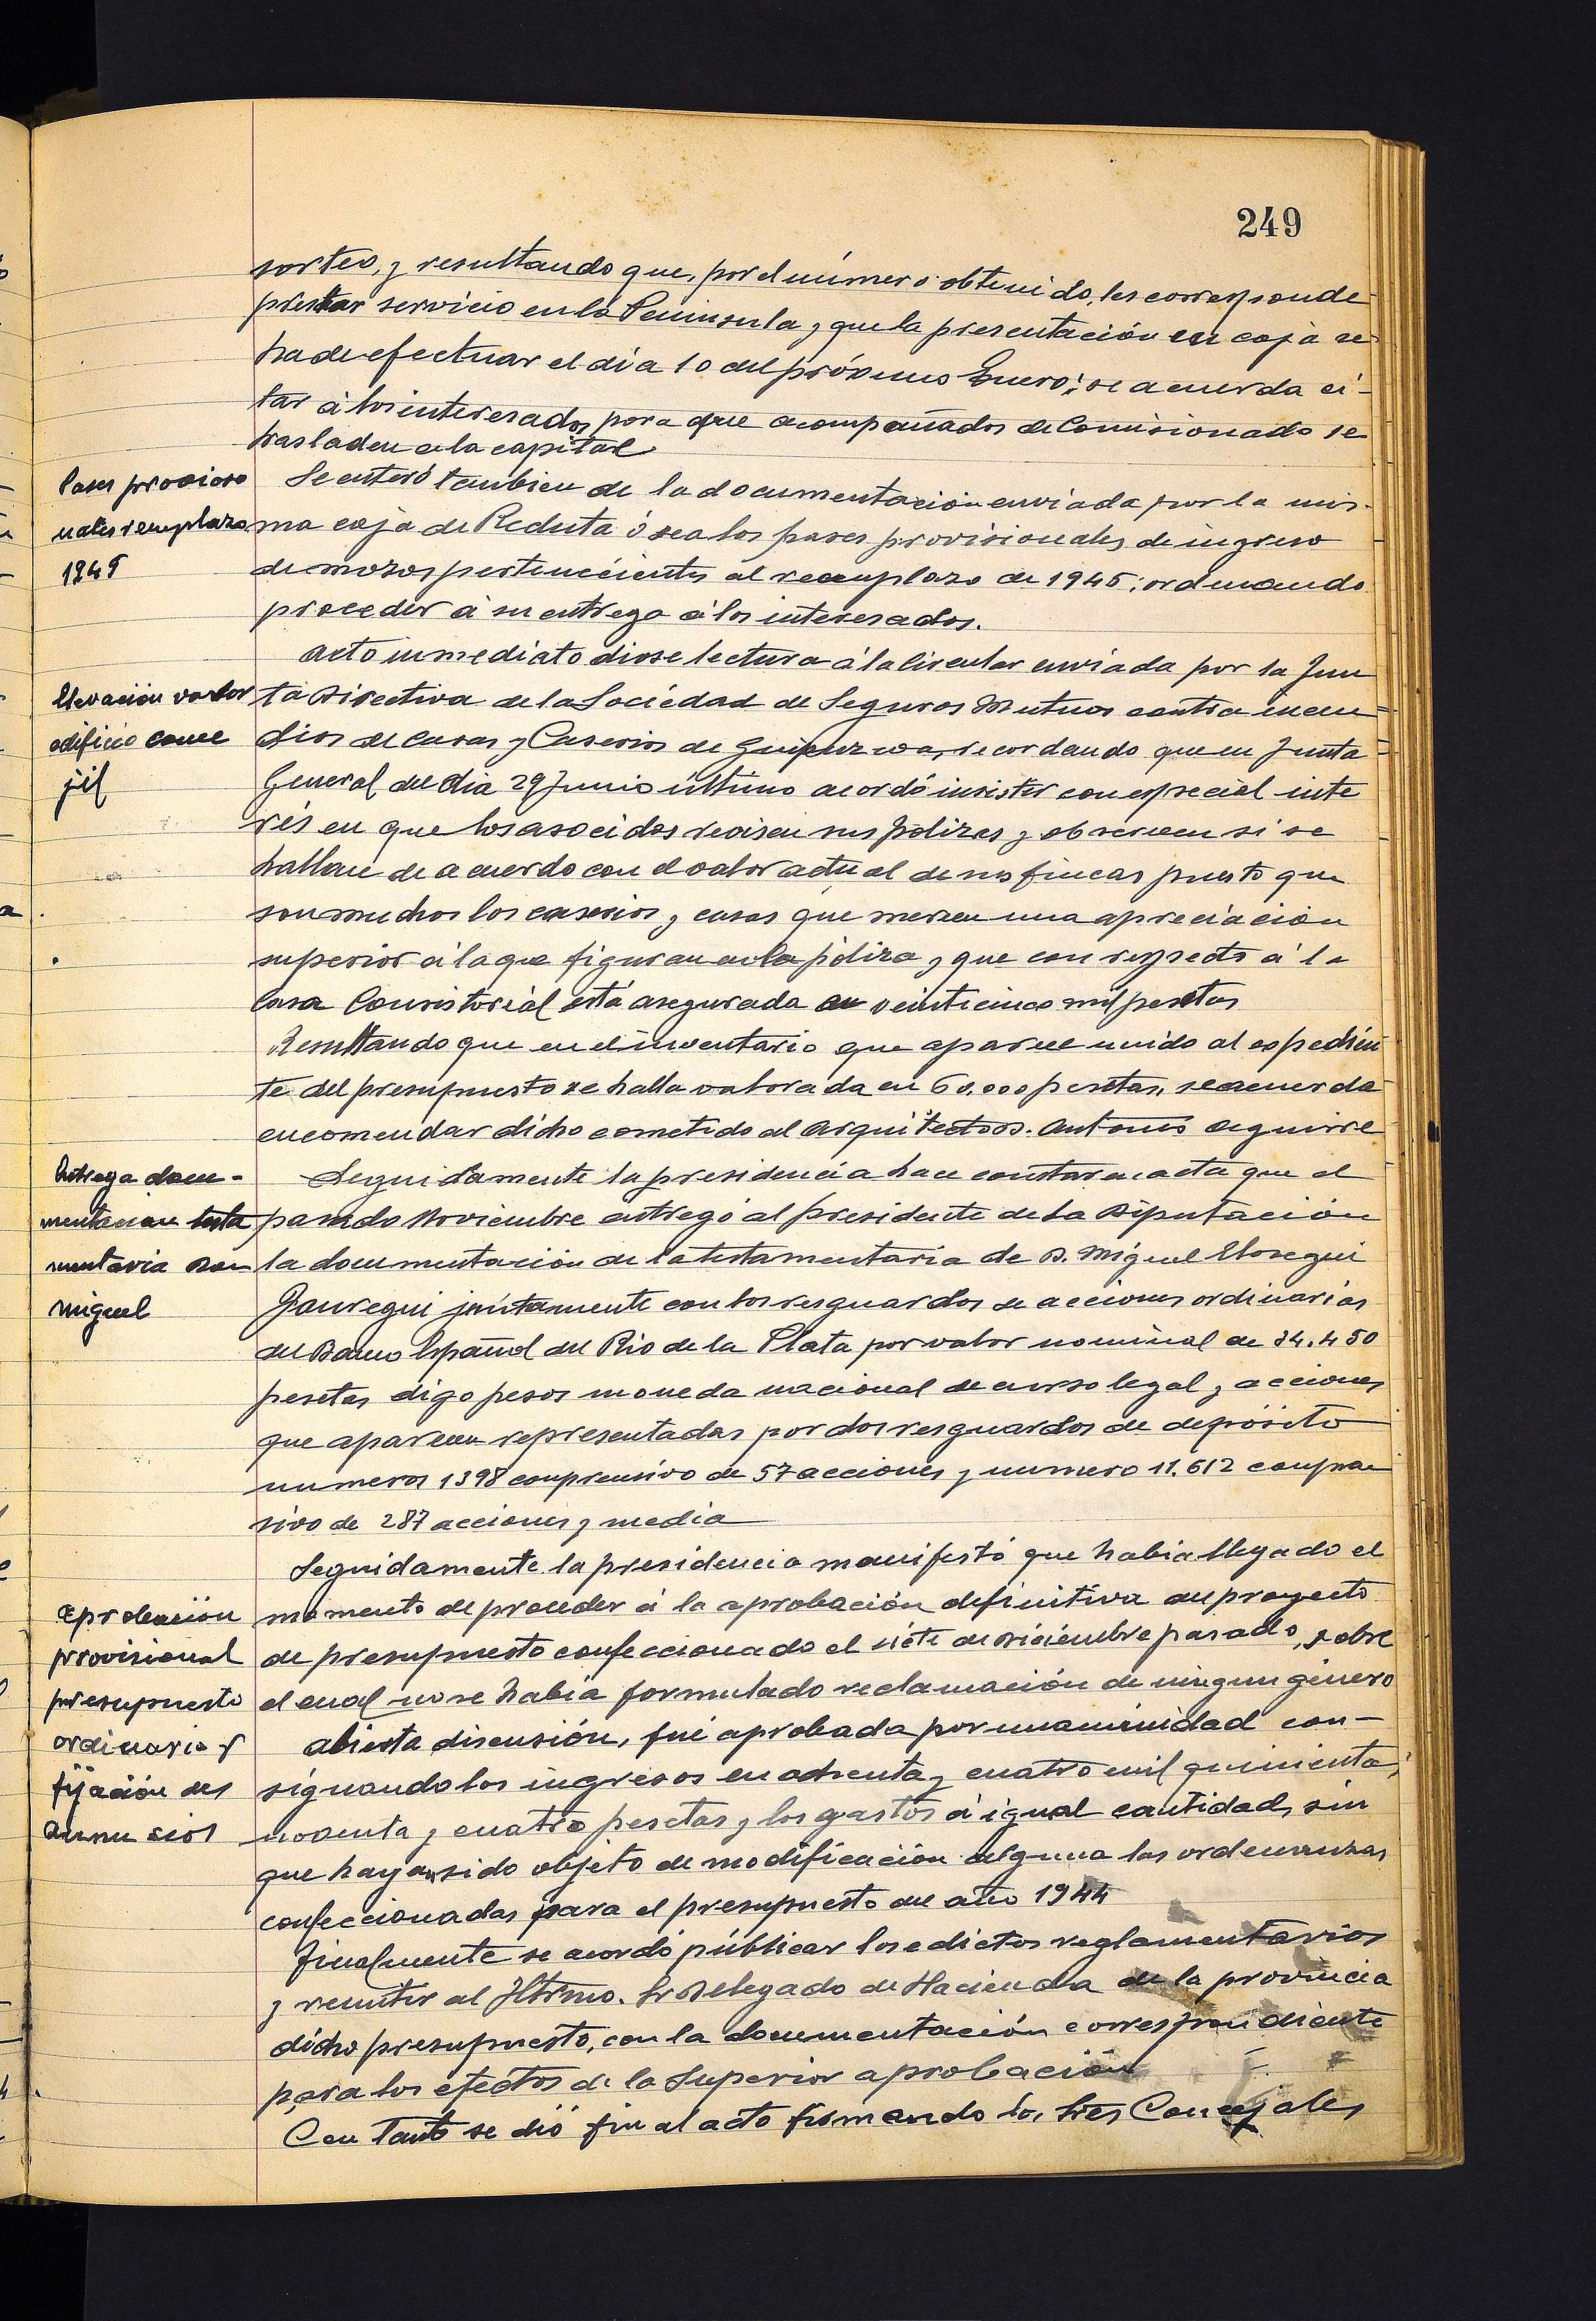 249
sorteo, y resultando que, por el número obtenido, les corresponde
prestar servicio en la Peninsula y que la presentación en caja se
ha de efectuar el dia 10 del próximo Enero; se acuerda ci-
tar á los interesados para que acompañados de Comisionado se
trasladen a la capital
Pases provisio
nales remplazo
1945
Se enteró tambien de la documentación enviada por la mis-
ma caja de Recluta ó sea los pases provisionales de ingreso
de mozos pertenecientes al reemplazo de 1945; ordenando
proceder á su entrega á los interesados.
Elevación valor
edificio conce
jil
acto inmediato diose lectura á la circular enviada por la Jun
ta Directiva de la Sociedad de Seguros Mutuos contra incen
dios de casas y Caserios de Guipuzcoa, recordando que en Junta
General del dia 29 Junio ultimo acordó insistir con especial inte
rés en que los asociados revisen sus pólizas y observen si se
hallan de acuerdo con el valor actual de sus fincas puesto que
son muchos los caserios y casas que merecen una apreciación
superior á la que figuran en la póliza y que con respecto á la
Casa Consistorial está asegurada en veinticinco mil pesetas
Resultando que en el inventario que aparece unido al expedien
te del presupuesto se halla valorada en 60.000 pesetas, se acuerda
encomendar dicho cometido al arquitecto D. Antonio Aguirre
Entrega docu-
mentación testa
mentaria Don
Miguel
Seguidamente la presidencia hace constar en acta que el
pasado Noviembre entregó al presidente de la Diputación
la documentación de la testamentaria de D. Miguel Elosegui
Jauregui juntamente con los resguardos de acciones ordinarias
del Banco Español del Rio de la Plata por valor nominal de 34.450
pesetas digo pesos moneda nacional de curso legal y acciones
que aparecen representadas por dos resguardos de depósito
numeros 1398 comprensivo de 57 acciones y numero 11.612 compren
sivo de 287 acciones y media
Aprobación
provisional
presupuesto
ordinario y
fijación de
anuncios
Seguidamente la presidencia manifestó que habia llegado el
momento de proceder á la aprobación definitiva del proyecto
de presupuesto confeccionado el siete de Diciembre pasado, sobre
el cual no se habia formulado reclamación de ningun género
abierta discusión, fué aprobada por unanimidad con-
signando los ingresos en ochenta y cuatro mil quinientas
noventa y cuatro pesetas y los gastos á igual cantidad, sin
que hayan sido objeto de modificación alguna las ordenanzas
confeccionadas para el presupuesto del año 1944
Finalmente se acordó publicar los edictos reglamentarios
y remitir al Iltrmo. Sr Delegado de Hacienda de la provincia
dicho presupuesto, con la documentación correspondiente
para los efectos de la Superior aprobación
Con tanto se dió fin al acto firmando los tres Concejales